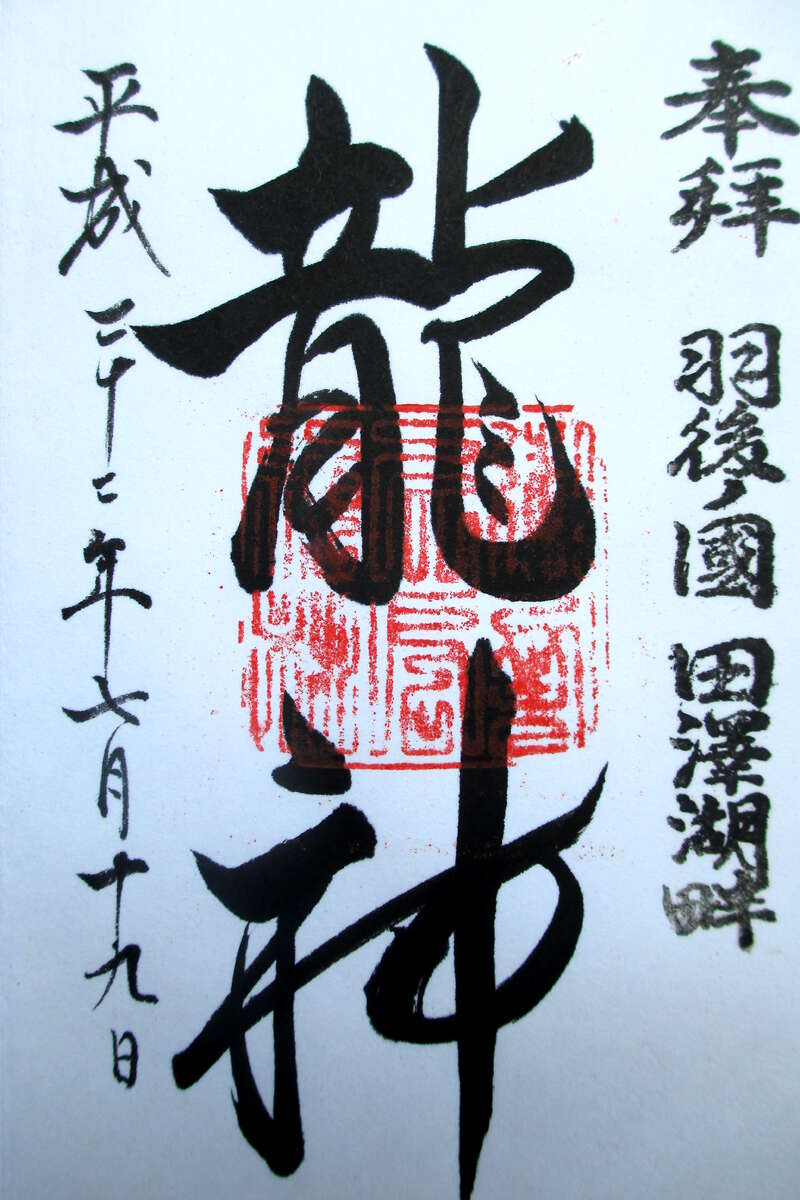 奉拝 羽後ノ國 田澤湖畔
龍神
平成二十二年七月十九日